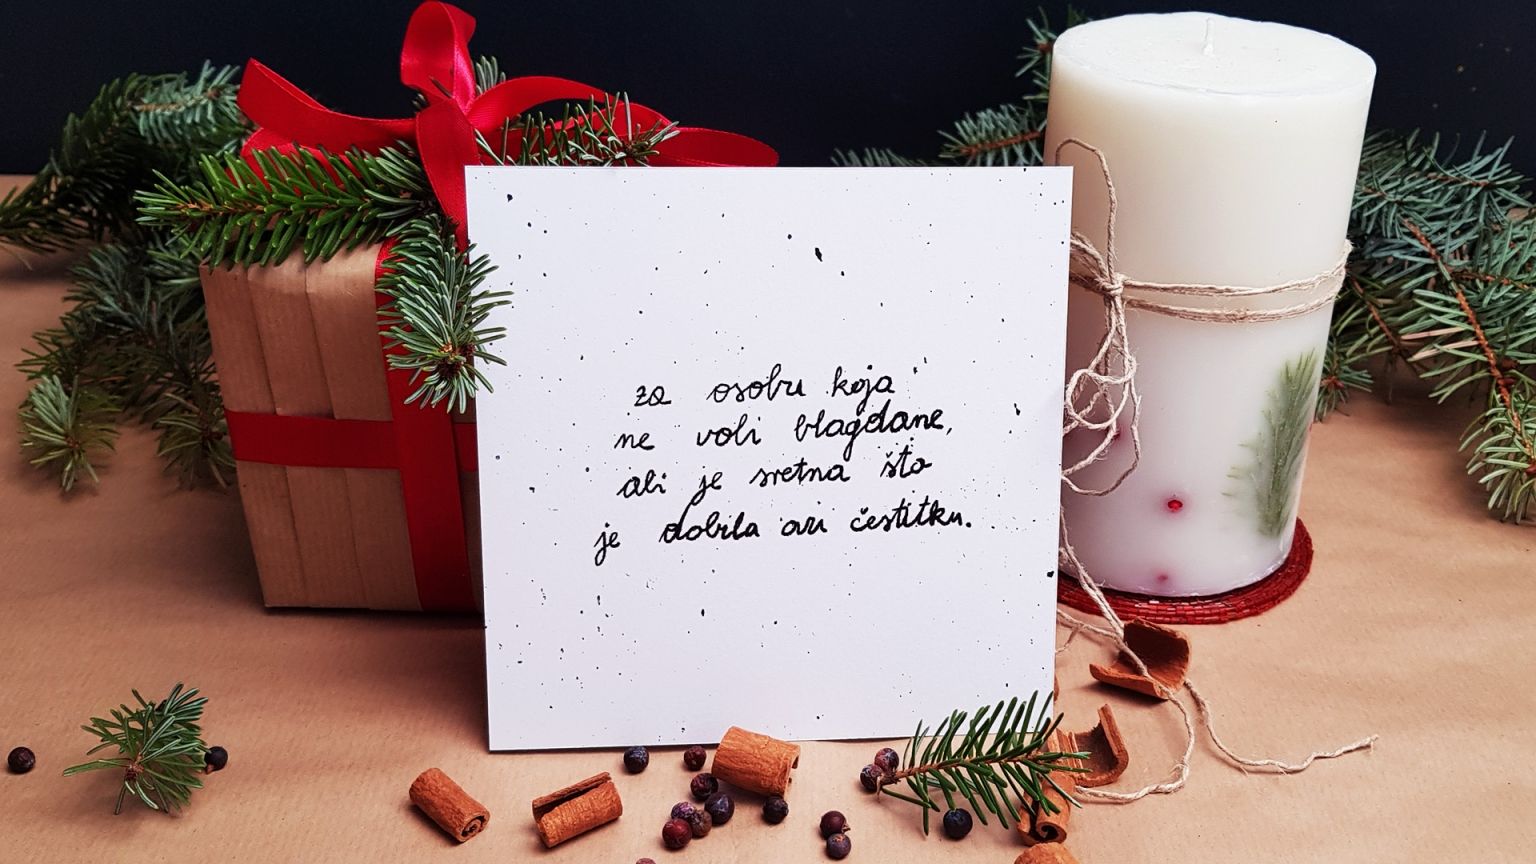 za osobu koja
ne voli blagdane,
ali je sretna što
je dobila ovu čestitku.